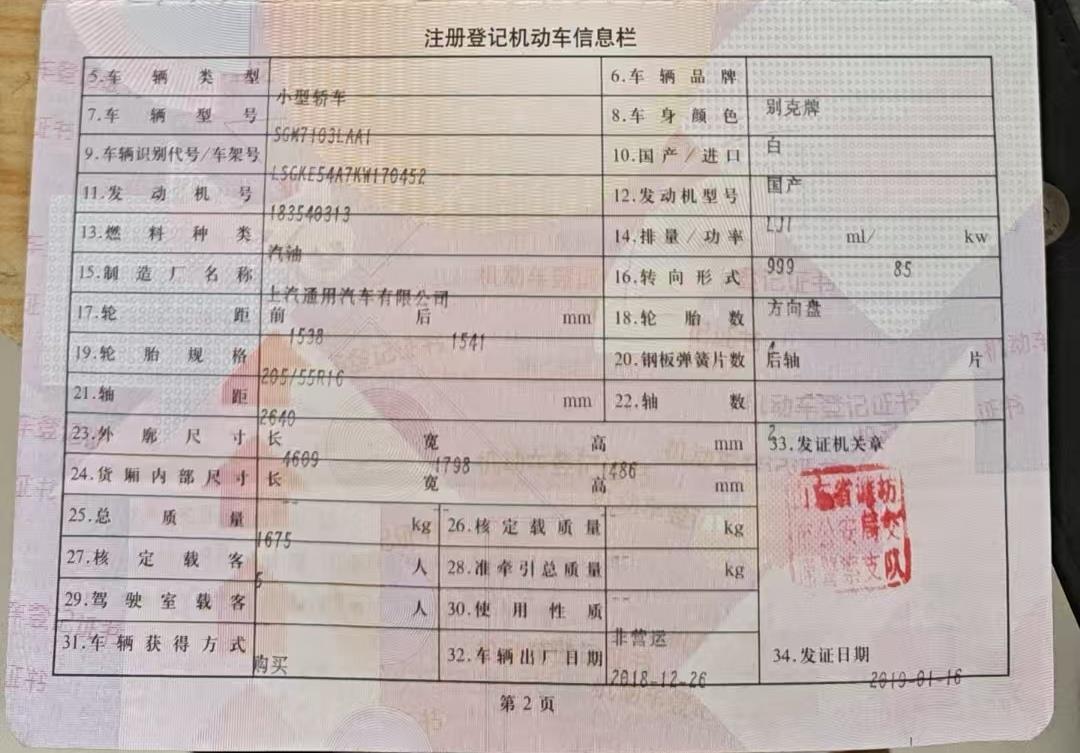 注册登记机动车信息栏
5.车辆类型 小型轿车 6.车辆品牌 别克牌
7.车辆型号 SGM7103LAA1 8.车身颜色 白
9.车辆识别代号/车架号 LSGKE54A7KW170452 10.国产/进口 国产
11.发动机号 183540313 12.发动机型号 LJI
13.燃料种类 汽油 14.排量/功率 999 ml/ 85 kw
15.制造厂名称 上汽通用汽车有限公司 16.转向形式 方向盘
17.轮距 前 1538 后 1541 mm 18.轮胎数 4
19.轮胎规格 205/55R16 20.钢板弹簧片数 后轴 片
21.轴距 2640 mm 22.轴数 2
23.外廓尺寸 长 4609 宽 1798 高 1486 mm 33.发证机关章
24.货厢内部尺寸 长 -- 宽 -- 高 mm
25.总质量 1675 kg 26.核定载质量 -- kg
27.核定载客 5 人 28.准牵引总质量 -- kg
29.驾驶室载客 人 30.使用性质 非营运
31.车辆获得方式 购买 32.车辆出厂日期 2018-12-26 34.发证日期 2019-01-16
第2页